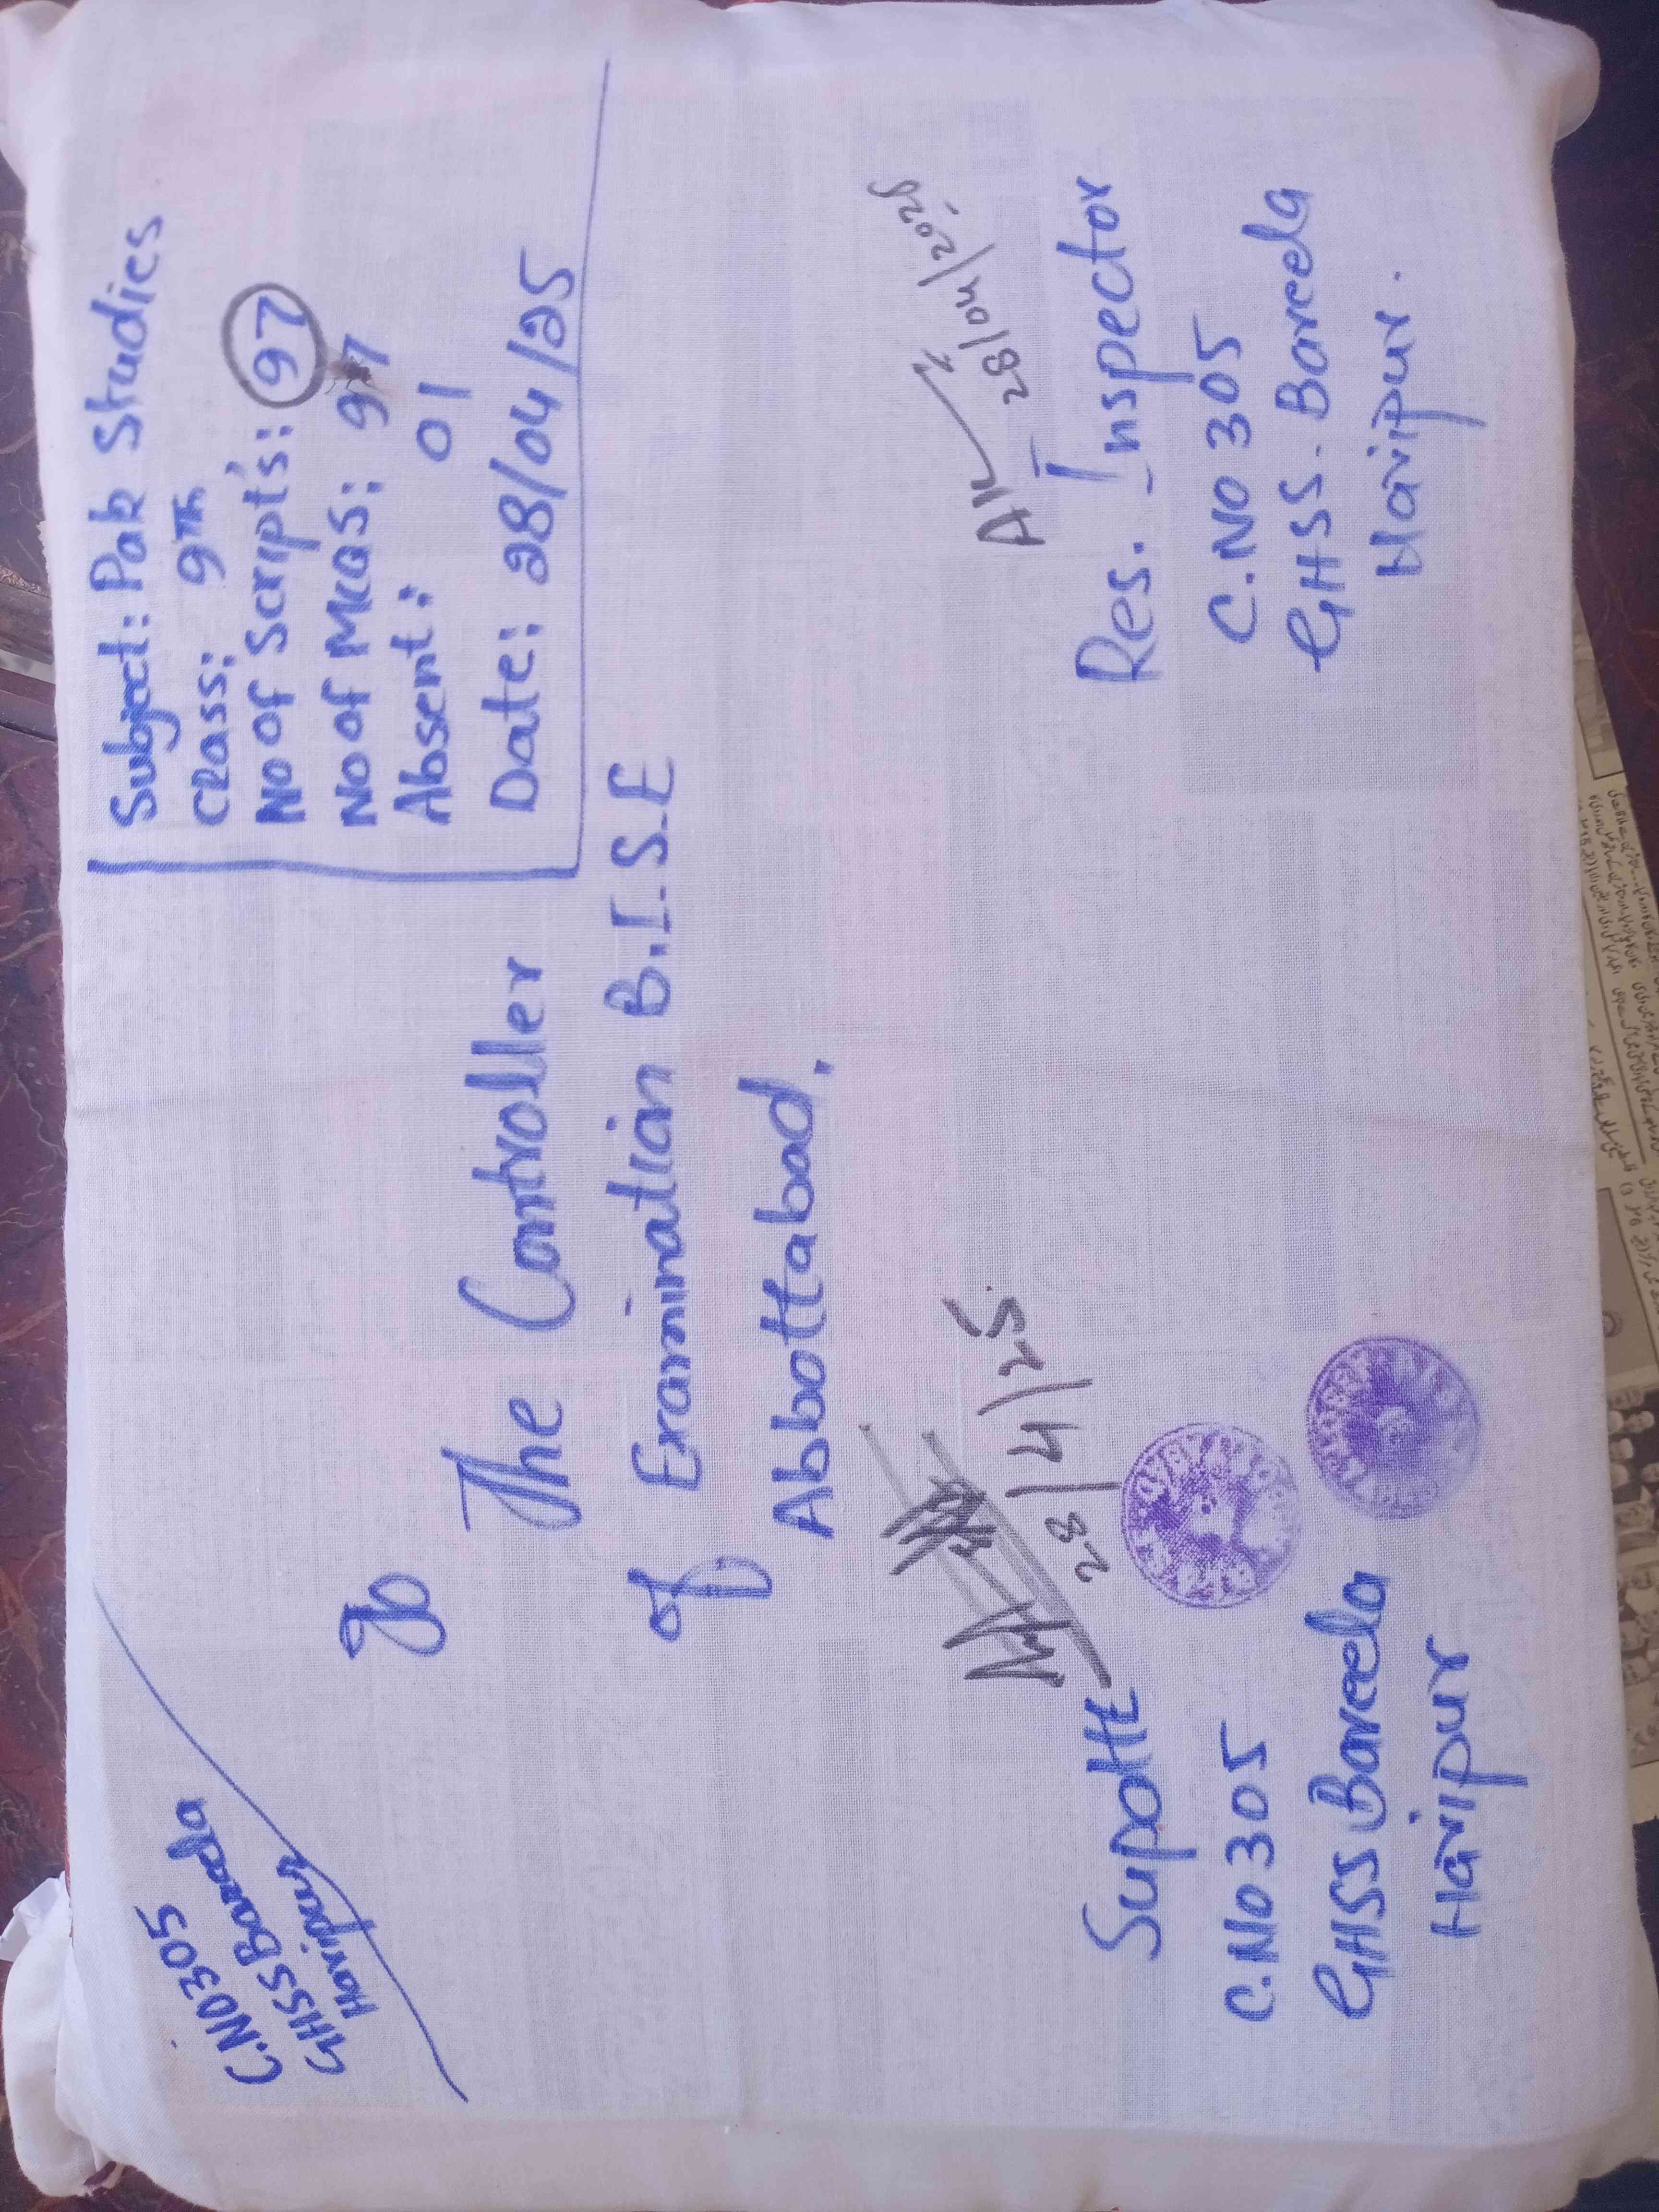 C.NO 305
GHSS Bareela
Haripur
Subject: Pak Studies
Class: 9TH
No of Script's: 97
No of MCQS: 97
Absent: 01
Date: 28/04/25
To
The Controller
of Examination B.I.S.E
Abbottabad.
28/4/25
Supdtt
C.No 305
GHSS Bareela
Haripur
28/04/2025
Res. Inspector
C.No 305
GHSS. Bareela
Haripur.